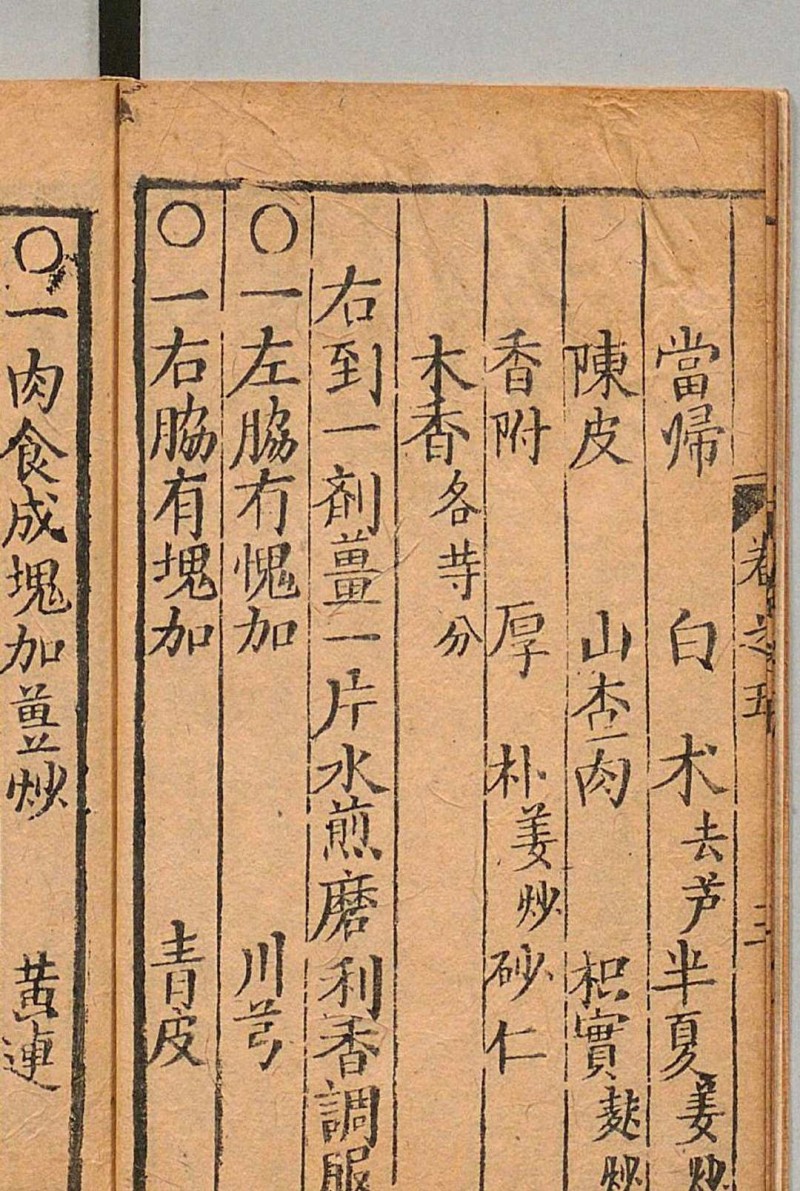 卷之五 三
當歸 白术去芦半夏姜炒
陳皮 山査肉 枳實麸炒
香附 厚朴姜炒砂仁
木香各䒭分
右剉一劑薑一片水煎磨利香調服
○一左脇有愧加 川芎
○一右脇有塊加 青皮
○一肉食成塊加薑炒 黃連